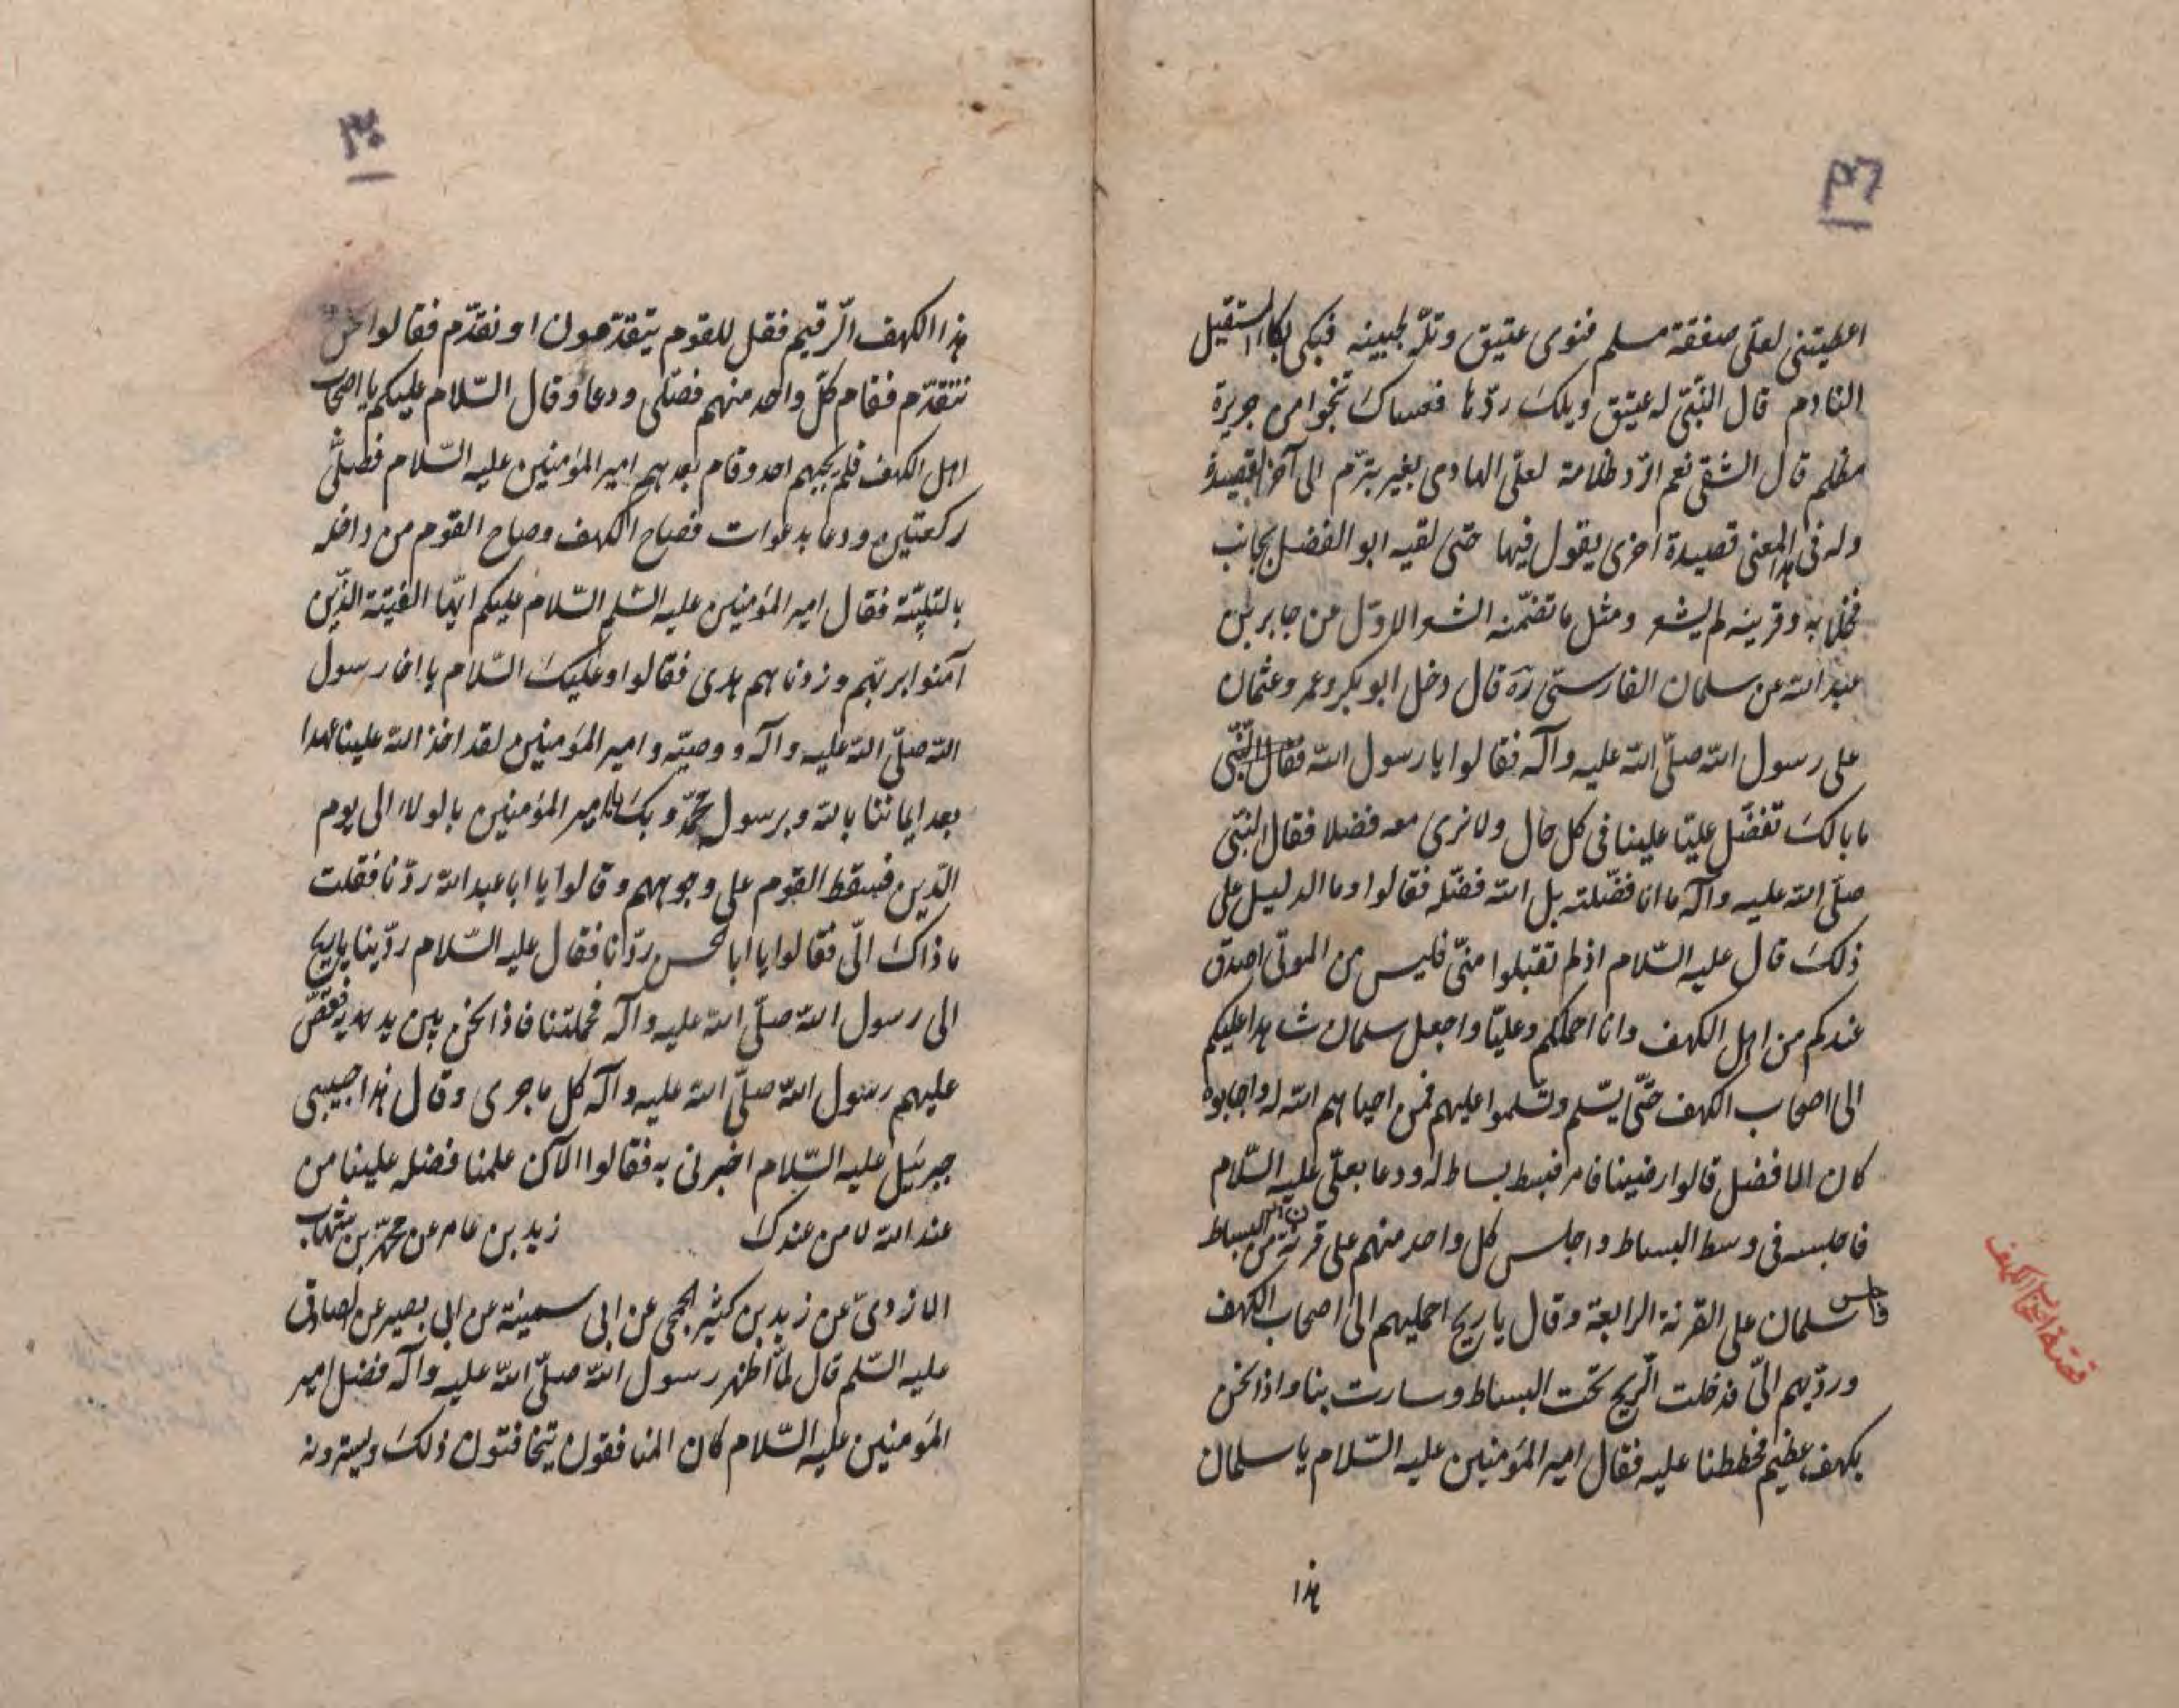 ٣٦
اعطيتنى لعلى صفقة مسلم فنوى عتيق وتلّه لجبينه فبكى بكاء المستقيل
النادم قال النبّى له عتيق ويلك ردّها فعساك تنجوا من جريرة
مظلم قال الشقى نعم اردّ ظلامة لعلى الهادى بغير تبرّم الى آخر القصيدة
وله فى هذا المعنى قصيدة اخرى يقول فيها حتى لقيه ابو الفضل بجانب
فخلا به وقرينه لم يشعر ومثل ما تضمّنه الشعر الاوّل عن جابر بن
عبد الله عن سلمان الفارسىّ ره قال دخل ابو بكر وعمر وعثمان
على رسول الله صلّى الله عليه وآله فقالوا يا رسول الله فقال النبّى
ما بالك تفضّل عليّا علينا فى كل حال ولا نرى معه فضلا فقال النبّى
صلّى الله عليه وآله ما انا فضّلته بل الله فضّله فقالوا وما الدليل على
ذلك قال عليه السّلام اذ لم تقبلوا منّى فليس من الموتى اصدق
عندكم من اهل الكهف وانا احملكم وعليّا واجعل سلمان شاهدا عليكم
الى اصحاب الكهف حتّى يسلّم وتسلموا عليهم فمن احياهم الله له واجابوه
كان الما فضل قالوا رضينا فامر فبسط بساط له ودعا بعلّى عليه السّلام
فاجلسه فى وسط البساط واجلس كل واحد منهم على قرنة من البساط
فاجلس سلمان على القرنة الرابعة وقال يا ريح احمليهم الى اصحاب الكهف
وردّيهم الىّ فدخلت الريح تحت البساط وسارت بنا واذا نحن
بكهف عظيم فحططنا عليه فقال امير المؤمنين عليه السّلام يا سلمان
هذا
قصّة اصحاب الكهف
هذا الكهف الرّقيم فقل للقوم يتقدّمون او نتقدّم فقالوا نحن
نتقدّم فقام كلّ واحد منهم فصلّى ودعا وقال السّلام عليكم يا اصحاب
اهل الكهف فلم يجبهم احد وقام بعدهم امير المؤمنين عليه السّلام فصلّى
ركعتين ودعا بدعوات فصاح الكهف وصاح القوم من داخله
بالتلبيّة فقال امير المؤمنين عليه السّلم السّلام عليكم ايّها الفيتة الذّين
آمنوا بربّهم وزدناهم هدى فقالوا وعليك السّلام يا اخا رسول
الله صلّى الله عليه وآله ووصيّه وامير المؤمنين لقد اخذ الله علينا عهدا
بعد ايماننا بالله وبرسوله محمّد وبك يا امير المؤمنين بالولاء الى يوم
الدّين فسقط القوم على وجوههم وقالوا يا ابا عبد الله ردّنا فقلت
ما ذاك الىّ فقالوا يا ابا الحسن ردّنا فقال عليه السّلام ردّينا يا ريح
الى رسول الله صلّى الله عليه وآله فحملتنا فاذا نحن بين يديه فقصّ
عليهم رسول الله صلّى الله عليه وآله كل ما جرى وقال هذا حبيبى
جبرئيل عليه السّلام اخبرنى به فقالوا الآن علمنا فضله علينا من
عند الله لا من عندك زيد بن عامر عن محمّد بن شهاب
الازدىّ عن زيد بن كثير الجمحى عن ابى سمينة عن ابى بصير عن الصادق
عليه السّلم قال لمّا اظهر رسول الله صلّى الله عليه وآله فضل امير
المؤمنين عليه السّلام كان المنافقون يتخافتون ذلك ويسترونه